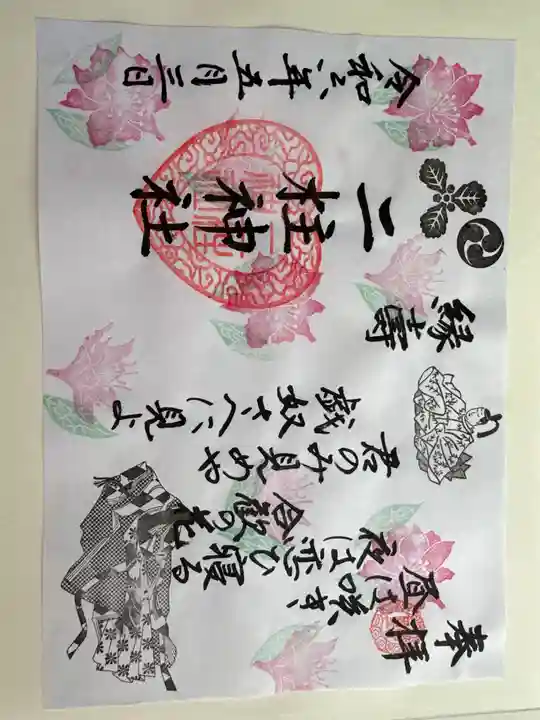 奉拝
昼は咲き
夜は恋ひ寝る
合歓の花
君のみ見めや
戯奴さへに見よ
縁寿
二柱神社
令和六年五月三日